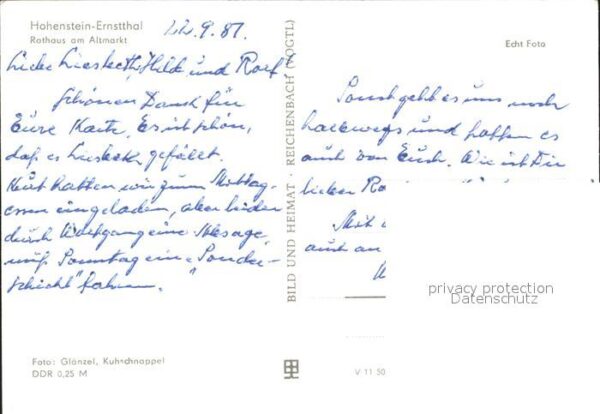 Hohenstein-Ernstthal
Rathaus am Altmarkt
22.9.81.
Liebe Liesbeth, Hilde und Rolf!
Schönen Dank für
Eure Karte. Es ist schön,
daß es Liesbeth gefällt.
Heut hatten wir zum Mittag-
essen eingeladen, aber leider
durch eine Absage,
muß Sonntag eine "Sonder-
schicht" fahren.
BILD UND HEIMAT · REICHENBACH (VOGTL)
Echt Foto
Sonst geht es uns noch
halbwegs und hoffen es
auch von Euch. Wie ist Dir
lieber
Mit
auch an
privacy protection
Datenschutz
Foto: Glänzel, Kuhschnappel
DDR 0,25 M
V 11 50